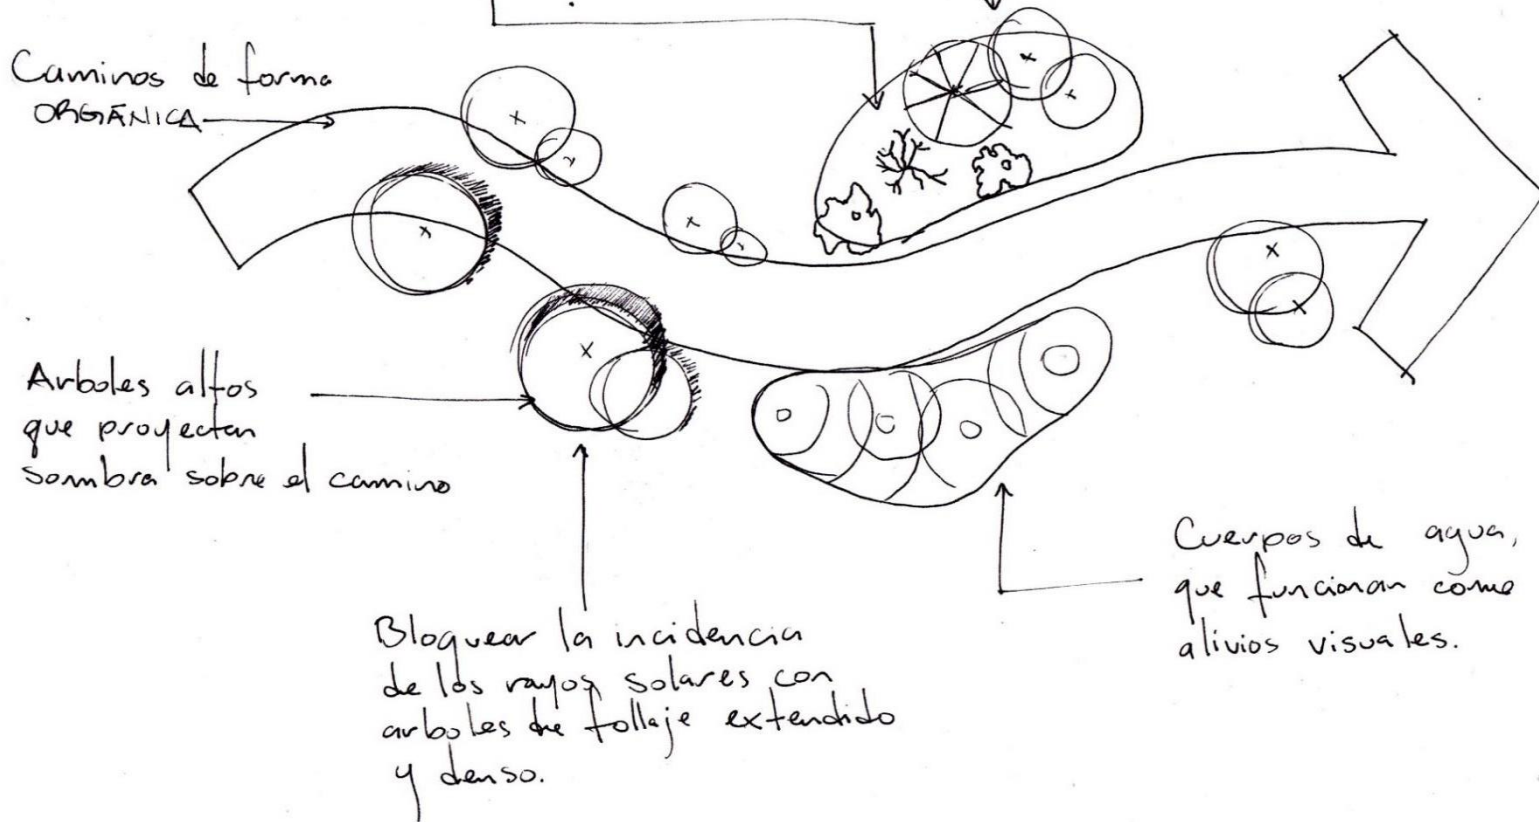 Caminos de forma
ORGÁNICA
Arboles altos
que proyectan
sombra sobre el camino
Bloquear la incidencia
de los rayos solares con
arboles de follaje extendido
y denso.
Cuerpos de agua,
que funcionan como
alivios visuales.